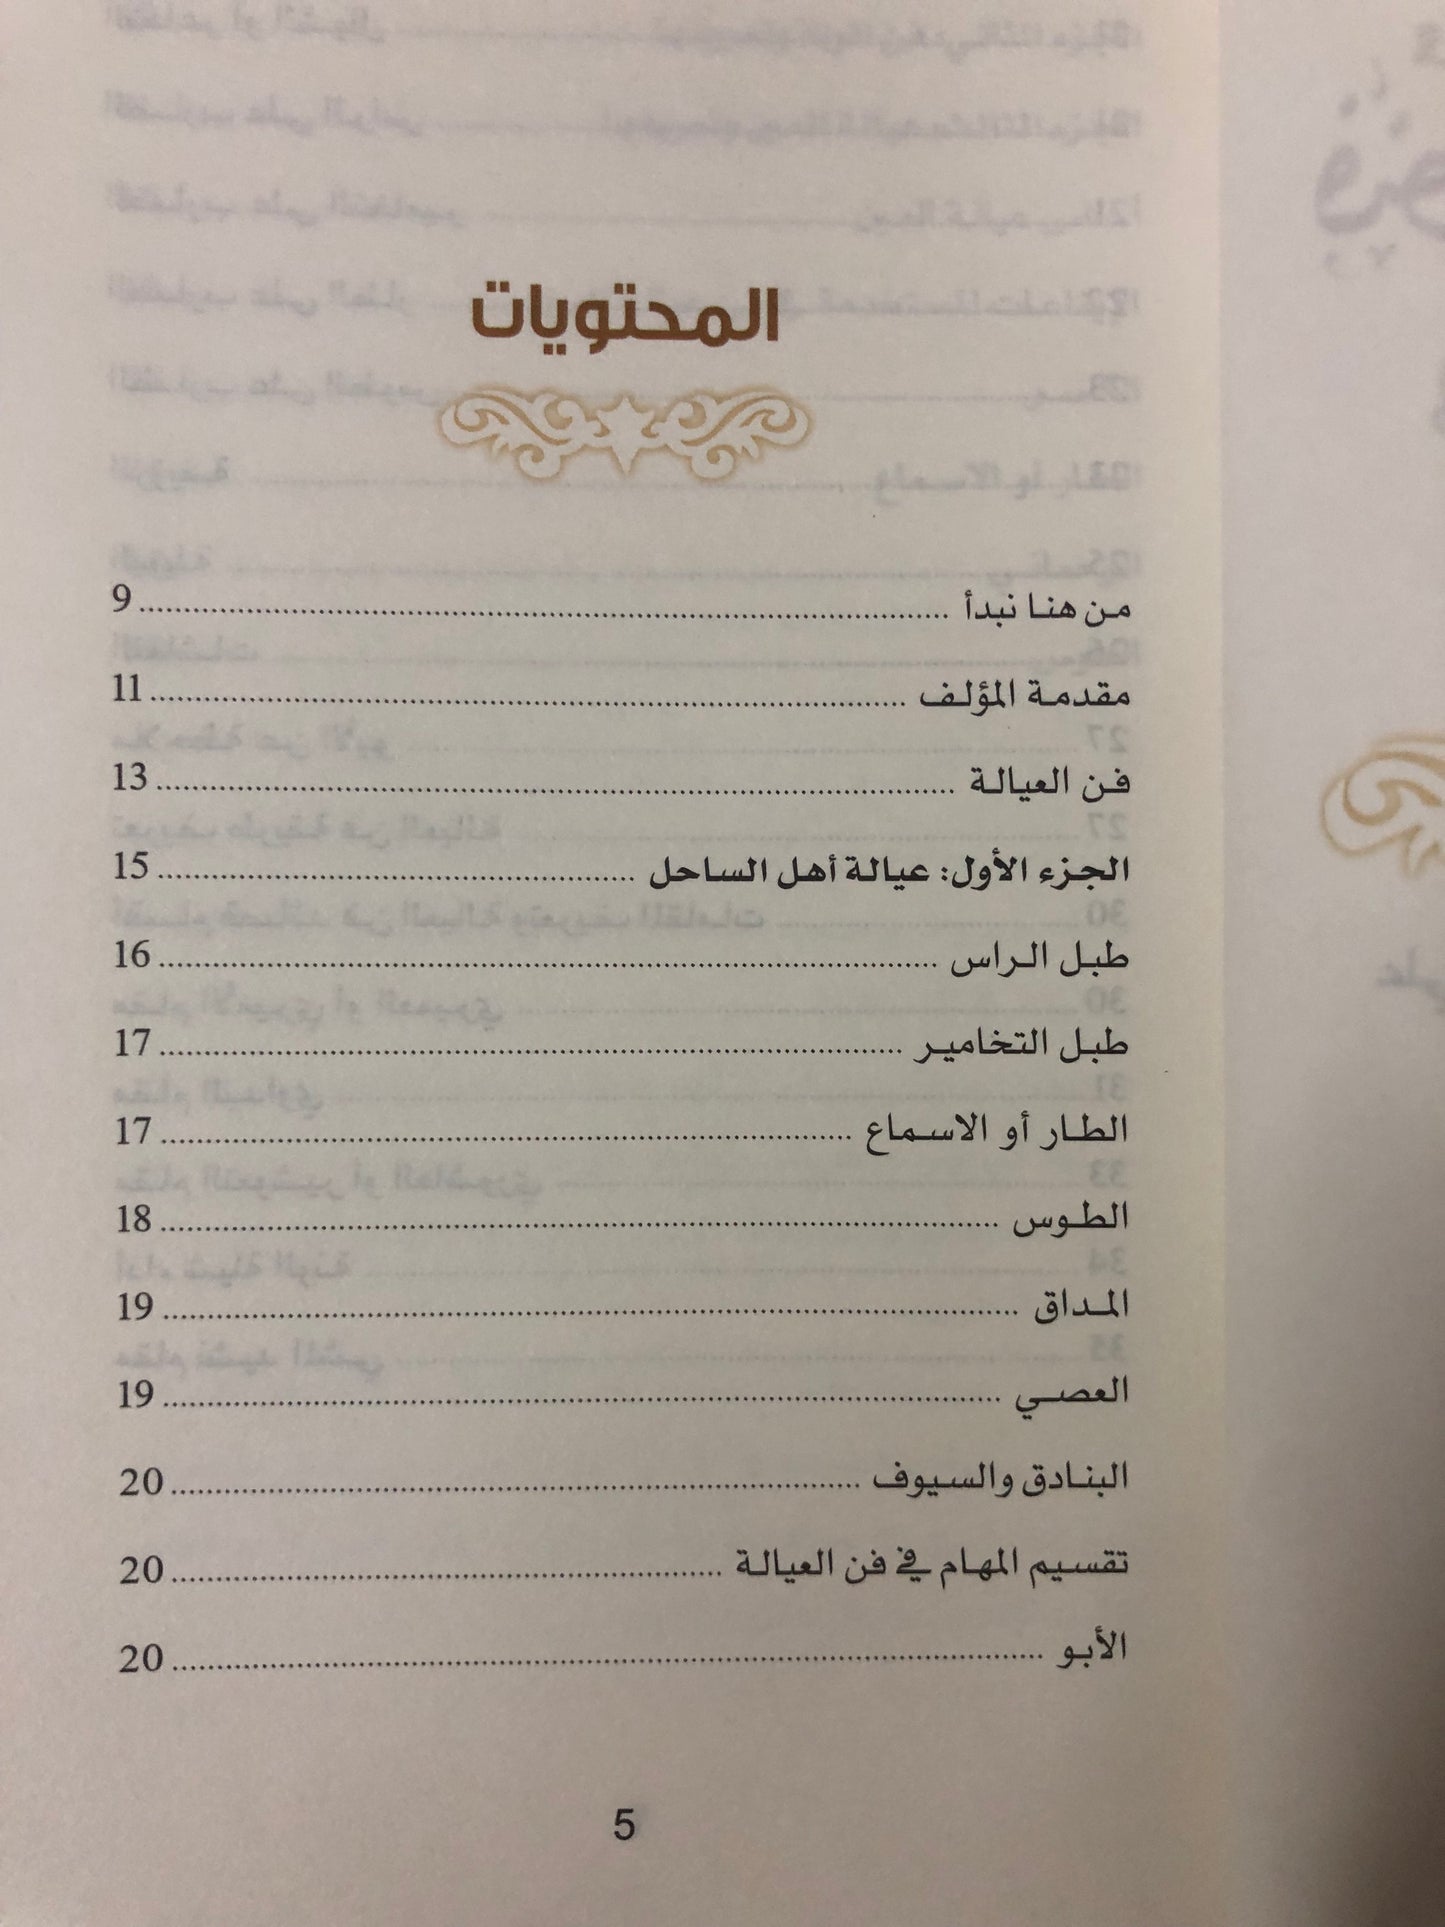 المحتويات
من هنا نبدأ ........ 9
مقدمة المؤلف ........ 11
فن العيالة ........ 13
الجزء الأول: عيالة أهل الساحل ........ 15
طبل الراس ........ 16
طبل التخامير ........ 17
الطار أو الاسماع ........ 17
الطوس ........ 18
المداق ........ 19
العصي ........ 19
البنادق والسيوف ........ 20
تقسيم المهام في فن العيالة ........ 20
الأبو ........ 20
5